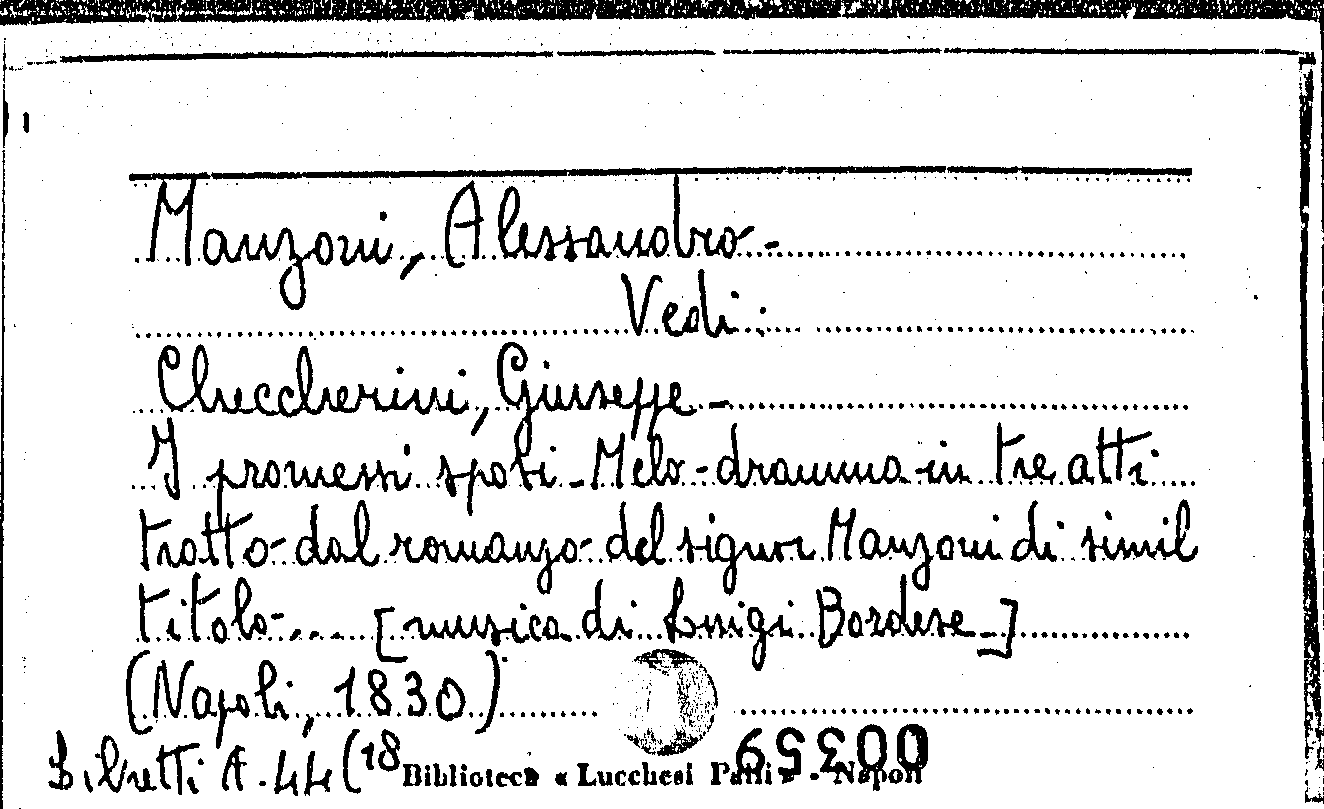 Manzoni, Alessandro -
Vedi:
Checcherini, Giuseppe -
I promessi sposi - Melo-dramma in tre atti
tratto dal romanzo del signor Manzoni di simil
titolo... [musica di Luigi Bordese]
(Napoli, 1830)
Libretti A. 44 (18
Biblioteca « Lucchesi Palli » - Napoli